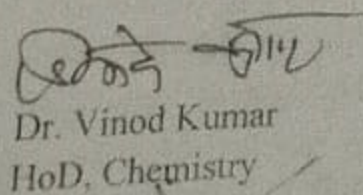 Dr. Vinod Kumar
HoD, Chemistry